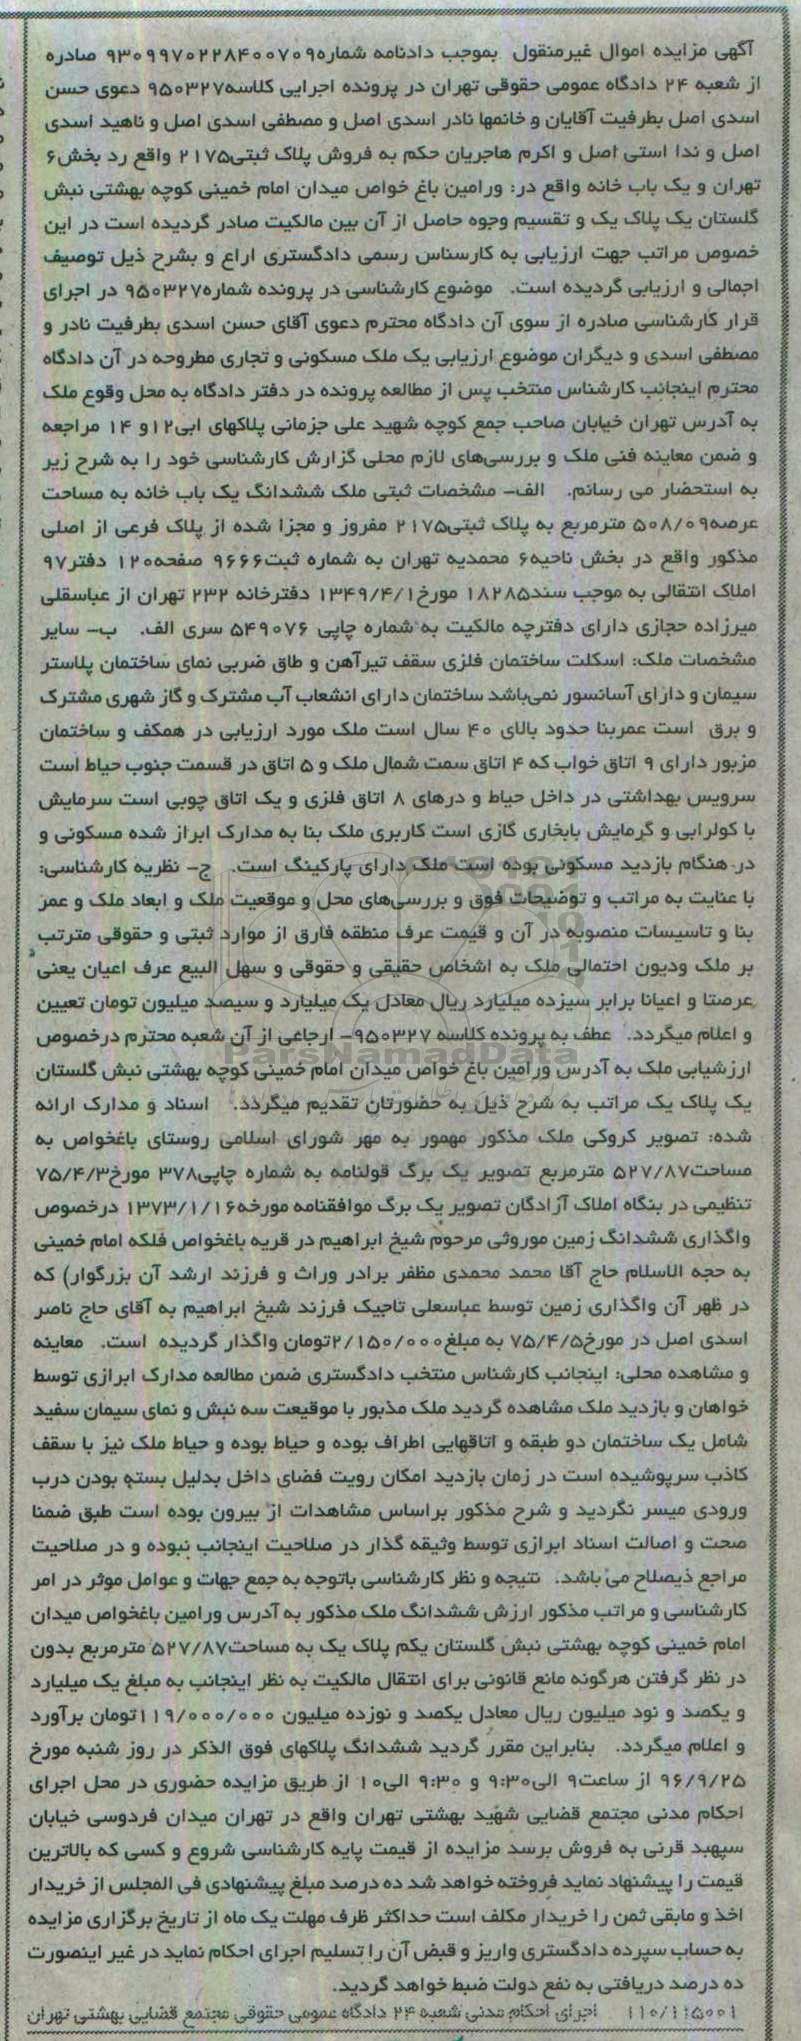 آگهی مزایده اموال غیرمنقول بموجب دادنامه شماره۹۳۰۹۹۷۰۲۲۸۴۰۰۷۰۹ صادره
از شعبه ۲۴ دادگاه عمومی حقوقی تهران در پرونده اجرایی کلاسه۹۵۰۳۲۷ دعوی حسن
اسدی اصل بطرفیت آقایان و خانمها نادر اسدی اصل و مصطفی اسدی اصل و ناهید اسدی
اصل و ندا استی اصل و اکرم هاجریان حکم به فروش پلاک ثبتی۲۱۷۵ واقع رد بخش۶
تهران و یک باب خانه واقع در: ورامین باغ خواص میدان امام خمینی کوچه بهشتی نبش
گلستان یک پلاک یک و تقسیم وجوه حاصل از آن بین مالکیت صادر گردیده است در این
خصوص مراتب جهت ارزیابی به کارسناس رسمی دادگستری اراع و بشرح ذیل توصیف
اجمالی و ارزیابی گردیده است. موضوع کارشناسی در پرونده شماره۹۵۰۳۲۷ در اجرای
قرار کارشناسی صادره از سوی آن دادگاه محترم دعوی آقای حسن اسدی بطرفیت نادر و
مصطفی اسدی و دیگران موضوع ارزیابی یک ملک مسکونی و تجاری مطروحه در آن دادگاه
محترم اینجانب کارشناس منتخب پس از مطالعه پرونده در دفتر دادگاه به محل وقوع ملک
به آدرس تهران خیابان صاحب جمع کوچه شهید علی جزمانی پلاکهای ابی۱۲و ۱۴ مراجعه
و ضمن معاینه فنی ملک و بررسی‌های لازم محلی گزارش کارشناسی خود را به شرح زیر
به استحضار می رسانم. الف- مشخصات ثبتی ملک ششدانگ یک باب خانه به مساحت
عرصه۵۰۸/۰۹ مترمربع به پلاک ثبتی۲۱۷۵ مفروز و مجزا شده از پلاک فرعی از اصلی
مذکور واقع در بخش ناحیه۶ محمدیه تهران به شماره ثبت۹۶۶۶ صفحه۱۲۰ دفتر۹۷
املاک انتقالی به موجب سند۱۸۲۸۵ مورخ۱۳۴۹/۴/۱ دفترخانه ۲۳۲ تهران از عباسقلی
میرزاده حجازی دارای دفترچه مالکیت به شماره چاپی ۵۴۹۰۷۶ سری الف. ب- سایر
مشخصات ملک: اسکلت ساختمان فلزی سقف تیرآهن و طاق ضربی نمای ساختمان پلاستر
سیمان و دارای آسانسور نمی‌باشد ساختمان دارای انشعاب آب مشترک و گاز شهری مشترک
و برق است عمربنا حدود بالای ۴۰ سال است ملک مورد ارزیابی در همکف و ساختمان
مزبور دارای ۹ اتاق خواب که ۴ اتاق سمت شمال ملک و ۵ اتاق در قسمت جنوب حیاط است
سرویس بهداشتی در داخل حیاط و درهای ۸ اتاق فلزی و یک اتاق چوبی است سرمایش
با کولرابی و گرمایش بابخاری گازی است کاربری ملک بنا به مدارک ابراز شده مسکونی و
در هنگام بازدید مسکونی بوده است ملک دارای پارکینگ است. ج- نظریه کارشناسی:
با عنایت به مراتب و توضیحات فوق و بررسی‌های محل و موقعیت ملک و ابعاد ملک و عمر
بنا و تاسیسات منصوبه در آن و قیمت عرف منطقه فارق از موارد ثبتی و حقوقی مترتب
بر ملک ودیون احتمالی ملک به اشخاص حقیقی و حقوقی و سهل البیع عرف اعیان یعنی
عرصتا و اعیانا برابر سیزده میلیارد ریال معادل یک میلیارد و سیصد میلیون تومان تعیین
و اعلام میگردد. عطف به پرونده کلاسه ۹۵۰۳۲۷- ارجاعی از آن شعبه محترم درخصوص
ParsNamadData
ارزشیابی ملک به آدرس ورامین باغ خواص میدان امام خمینی کوچه بهشتی نبش گلستان
یک پلاک یک مراتب به شرح ذیل به حضورتان تقدیم میگردد. اسناد و مدارک ارائه
شده: تصویر کروکی ملک مذکور مهمور به مهر شورای اسلامی روستای باغخواص به
مساحت۵۲۷/۸۷ مترمربع تصویر یک برگ قولنامه به شماره چاپی۳۷۸ مورخ۷۵/۴/۳
تنظیمی در بنگاه املاک آزادگان تصویر یک برگ موافقتنامه مورخه۱۳۷۳/۱/۱۶ درخصوص
واگذاری ششدانگ زمین موروثی مرحوم شیخ ابراهیم در قریه باغخواص فلکه امام خمینی
به حجه الاسلام حاج آقا محمد محمدی مظفر برادر وراث و فرزند ارشد آن بزرگوار) که
در ظهر آن واگذاری زمین توسط عباسعلی تاجیک فرزند شیخ ابراهیم به آقای حاج ناصر
اسدی اصل در مورخ۷۵/۴/۵ به مبلغ۲/۱۵۰/۰۰۰تومان واگذار گردیده است. معاینه
و مشاهده محلی: اینجانب کارشناس منتخب دادگستری ضمن مطالعه مدارک ابرازی توسط
خواهان و بازدید ملک مشاهده گردید ملک مذبور با موقیعت سه نبش و نمای سیمان سفید
شامل یک ساختمان دو طبقه و اتاقهایی اطراف بوده و حیاط بوده و حیاط ملک نیز با سقف
کاذب سرپوشیده است در زمان بازدید امکان رویت فضای داخل بدلیل بسته بودن درب
ورودی میسر نگردید و شرح مذکور براساس مشاهدات از بیرون بوده است طبق ضمنا
صحت و اصالت اسناد ابرازی توسط وثیقه گذار در صلاحیت اینجانب نبوده و در صلاحیت
مراجع ذیصلاح می باشد. نتیجه و نظر کارشناسی باتوجه به جمع جهات و عوامل موثر در امر
کارشناسی و مراتب مذکور ارزش ششدانگ ملک مذکور به آدرس ورامین باغخواص میدان
امام خمینی کوچه بهشتی نبش گلستان یکم پلاک یک به مساحت۵۲۷/۸۷ مترمربع بدون
در نظر گرفتن هرگونه مانع قانونی برای انتقال مالکیت به نظر اینجانب به مبلغ یک میلیارد
و یکصد و نود میلیون ریال معادل یکصد و نوزده میلیون ۱۱۹/۰۰۰/۰۰۰تومان برآورد
و اعلام میگردد. بنابراین مقرر گردید ششدانگ پلاکهای فوق الذکر در روز شنبه مورخ
۹۶/۹/۲۵ از ساعت۹ الی۹:۳۰ و ۹:۳۰ الی۱۰ از طریق مزایده حضوری در محل اجرای
احکام مدنی مجتمع قضایی شهید بهشتی تهران واقع در تهران میدان فردوسی خیابان
سپهبد قرنی به فروش برسد مزایده از قیمت پایه کارشناسی شروع و کسی که بالاترین
قیمت را پیشنهاد نماید فروخته خواهد شد ده درصد مبلغ پیشنهادی فی المجلس از خریدار
اخذ و مابقی ثمن را خریدار مکلف است حداکثر ظرف مهلت یک ماه از تاریخ برگزاری مزایده
به حساب سپرده دادگستری واریز و قبض آن را تسلیم اجرای احکام نماید در غیر اینصورت
ده درصد دریافتی به نفع دولت ضبط خواهد گردید.
۱۱۰/۱۱۵۰۰۱ اجرای احکام مدنی شعبه ۲۴ دادگاه عمومی حقوقی مجتمع قضایی بهشتی تهران